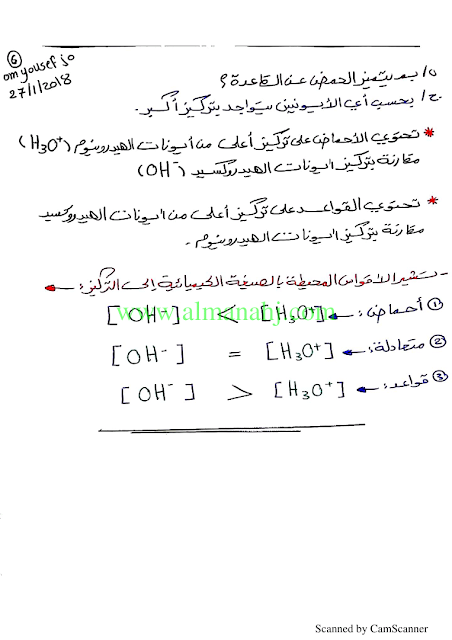 6
om yousef jo
27/1/2018
س/ بم يتميز الحمض عن القاعدة؟
ج/ بحسب أي الأيونين يتواجد بتركيز أكبر.
* تحتوي الأحماض على تركيز أعلى من أيونات الهيدرونيوم (H₃O⁺)
مقارنة بتركيز ايونات الهيدروكسيد (OH⁻)
* تحتوي القواعد على تركيز أعلى من ايونات الهيدروكسيد
مقارنة بتركيز ايونات الهيدرونيوم.
- تشير الأقواس المحيطة بالصيغة الكيميائية إلى التركيز:
www.almanahj.com
① أحماض: [OH⁻] < [H₃O⁺]
② متعادلة: [OH⁻] = [H₃O⁺]
③ قواعد: [OH⁻] > [H₃O⁺]
Scanned by CamScanner